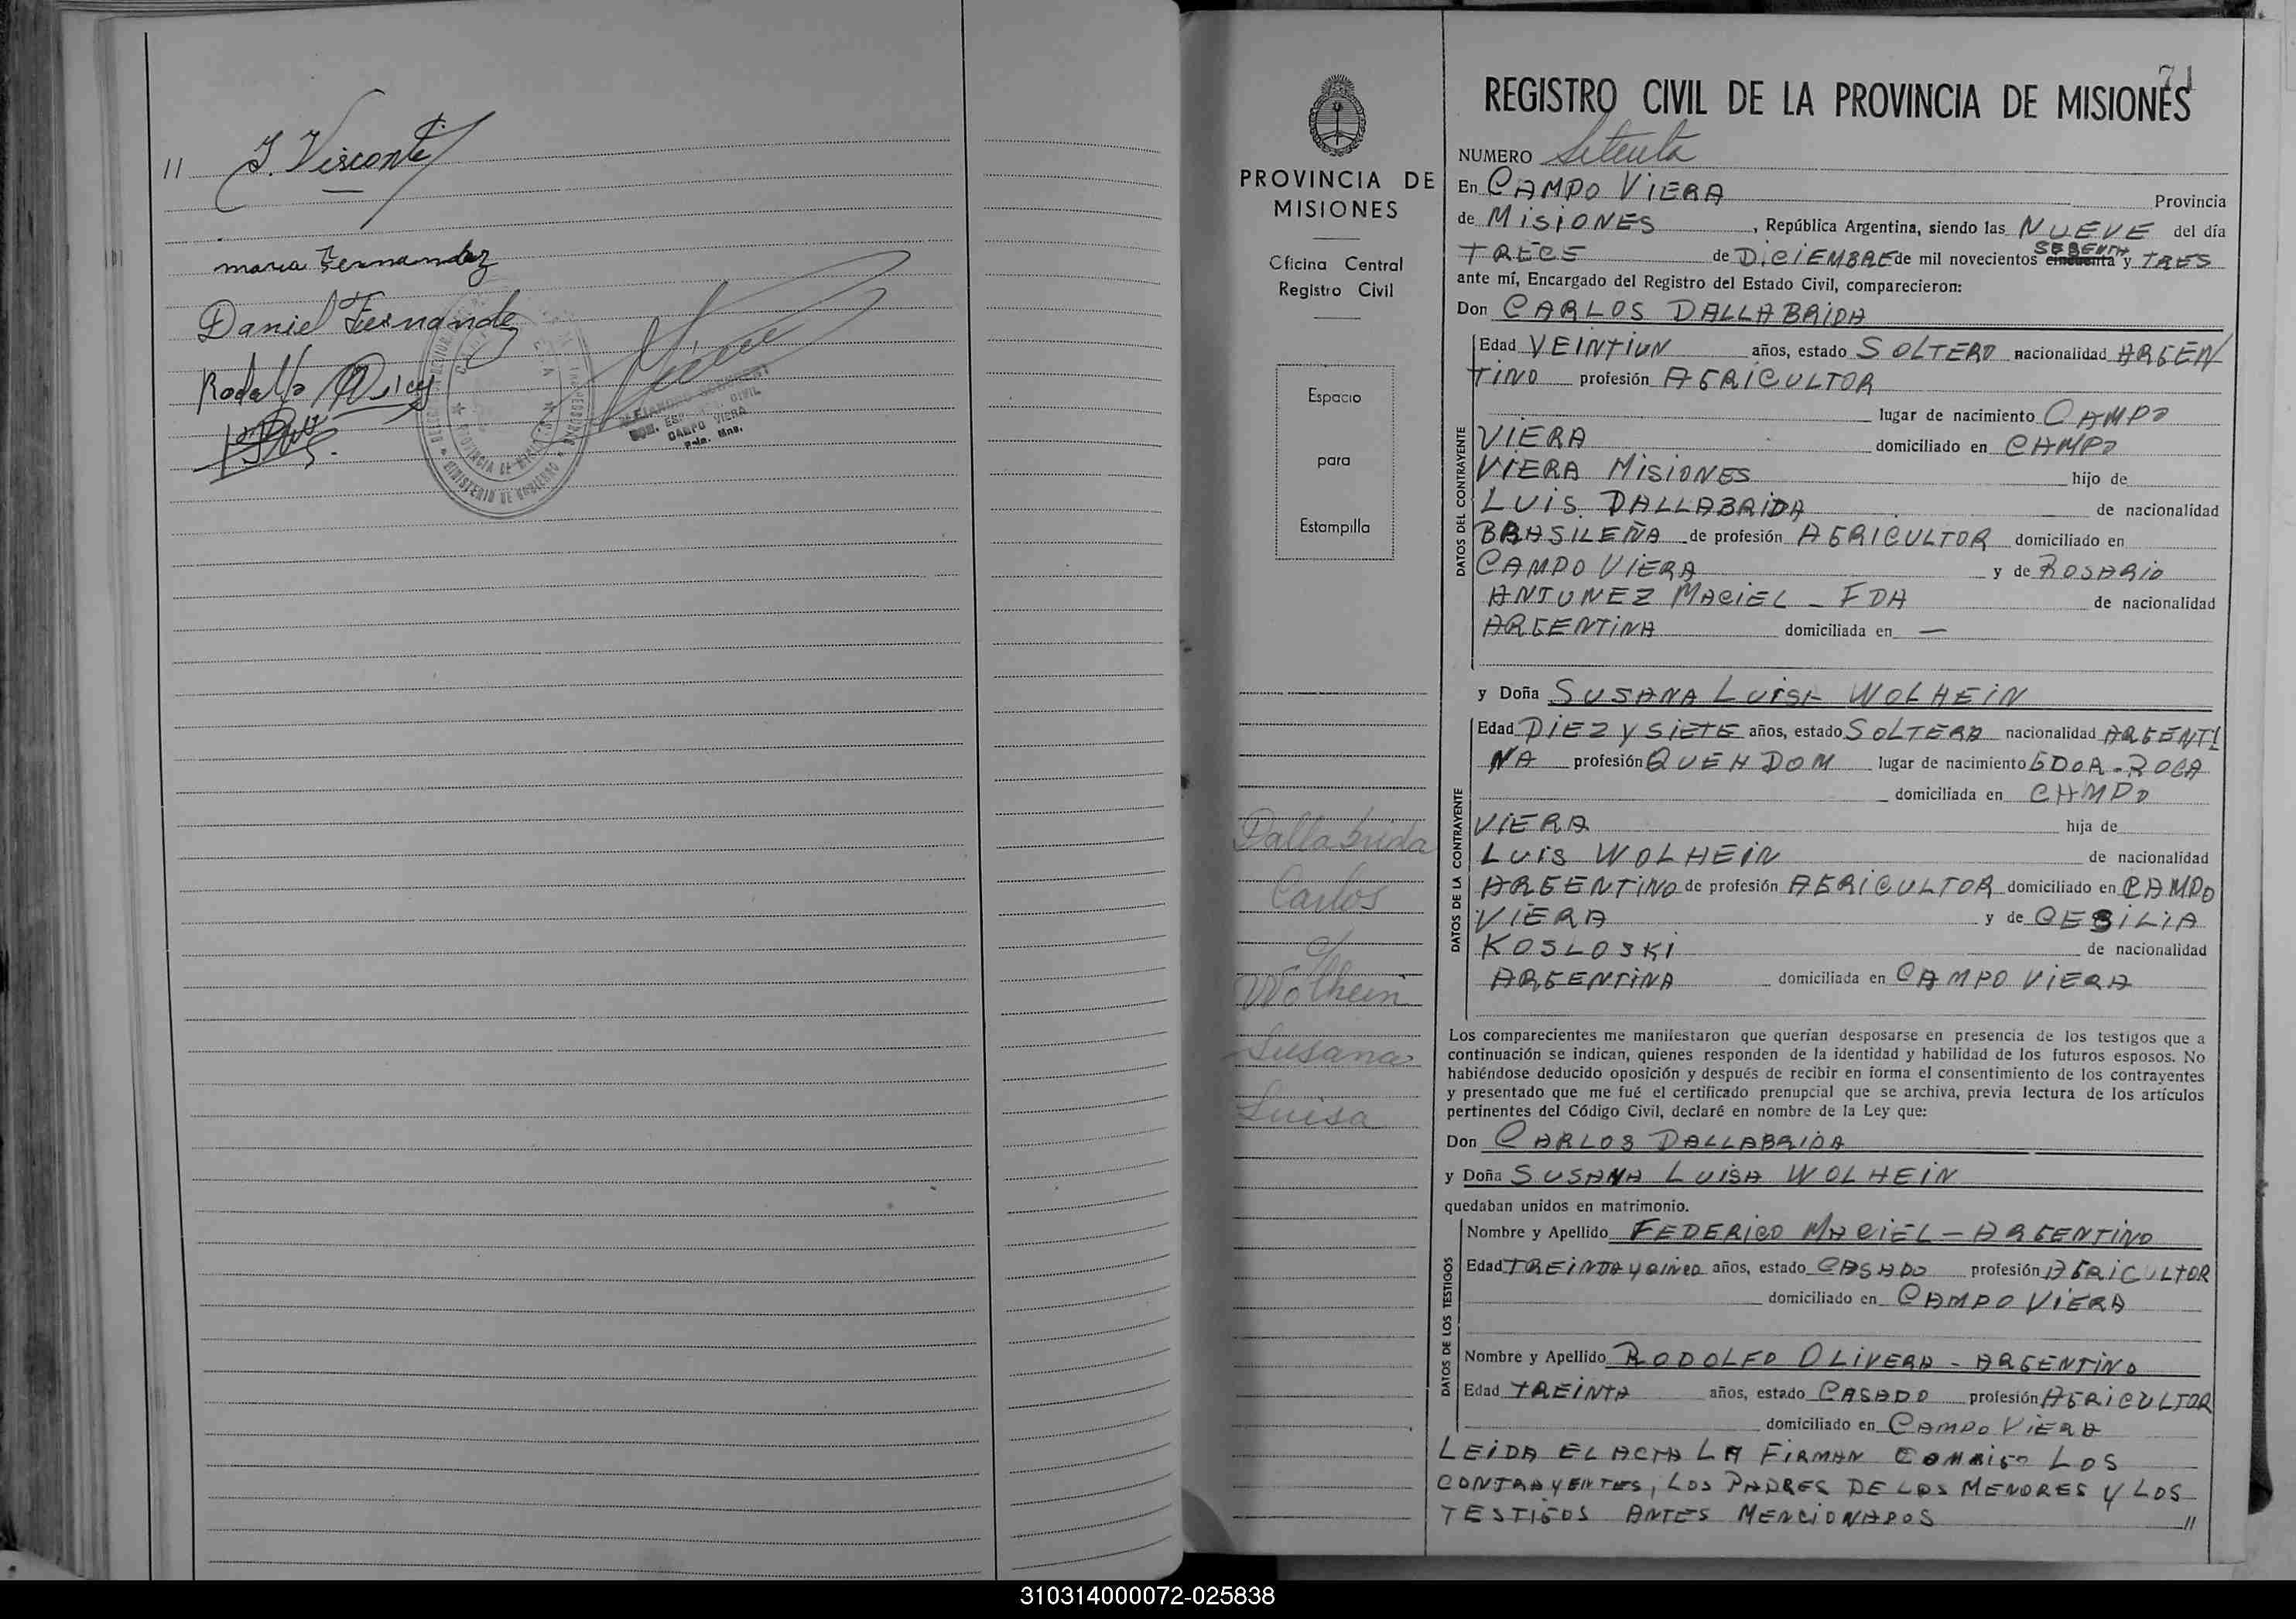 11 J. Visconti
maria Fernandez
Daniel Fernandez
Rodolfo
CAMPO VIERA
Pcia. Mns.
MINISTERIO DE GOBIERNO
PROVINCIA DE
MISIONES
Oficina Central
Registro Civil
Espacio
para
Estampilla
Dallabrida
Carlos
c/
Wolhein
Susana
Luisa
71
REGISTRO CIVIL DE LA PROVINCIA DE MISIONES
NUMERO Setenta
En CAMPO VIERA Provincia
de MISIONES, República Argentina, siendo las NUEVE del día
TRECE de DICIEMBRE de mil novecientos cincuenta SEBENTA y TRES
ante mí, Encargado del Registro del Estado Civil, comparecieron:
Don CARLOS DALLABRIDA
DATOS DEL CONTRAYENTE
Edad VEINTIUN años, estado SOLTERO nacionalidad ARGEN
TINO profesión AGRICULTOR
lugar de nacimiento CAMPO
VIERA domiciliado en CAMPO
VIERA MISIONES hijo de
LUIS DALLABRIDA de nacionalidad
BRASILEÑA de profesión AGRICULTOR domiciliado en
CAMPO VIERA y de ROSARIO
ANTUNEZ MACIEL - FDA de nacionalidad
ARGENTINA domiciliada en —
y Doña SUSANA LUISA WOLHEIN
DATOS DE LA CONTRAYENTE
Edad DIEZ Y SIETE años, estado SOLTERA nacionalidad ARGENTI
NA profesión QUEH DOM lugar de nacimiento GDOR-ROCA
domiciliada en CAMPO
VIERA hija de
LUIS WOLHEIN de nacionalidad
ARGENTINO de profesión AGRICULTOR domiciliado en CAMPO
VIERA y de CESILIA
KOSLOSKI de nacionalidad
ARGENTINA domiciliada en CAMPO VIERA
Los comparecientes me manifestaron que querían desposarse en presencia de los testigos que a
continuación se indican, quienes responden de la identidad y habilidad de los futuros esposos. No
habiéndose deducido oposición y después de recibir en forma el consentimiento de los contrayentes
y presentado que me fué el certificado prenupcial que se archiva, previa lectura de los artículos
pertinentes del Código Civil, declaré en nombre de la Ley que:
Don CARLOS DALLABRIDA
y Doña SUSANA LUISA WOLHEIN
quedaban unidos en matrimonio.
DATOS DE LOS TESTIGOS
Nombre y Apellido FEDERICO MACIEL - ARGENTINO
Edad TREINTA Y CINCO años, estado CASADO profesión AGRICULTOR
domiciliado en CAMPO VIERA
Nombre y Apellido RODOLFO OLIVERA - ARGENTINO
Edad TREINTA años, estado CASADO profesión AGRICULTOR
domiciliado en CAMPO VIERA
LEIDA EL ACTA LA FIRMAN COMNIGO LOS
CONTRAYENTES, LOS PADRES DE LOS MENORES Y LOS
TESTIGOS ANTES MENCIONADOS //
310314000072-025838